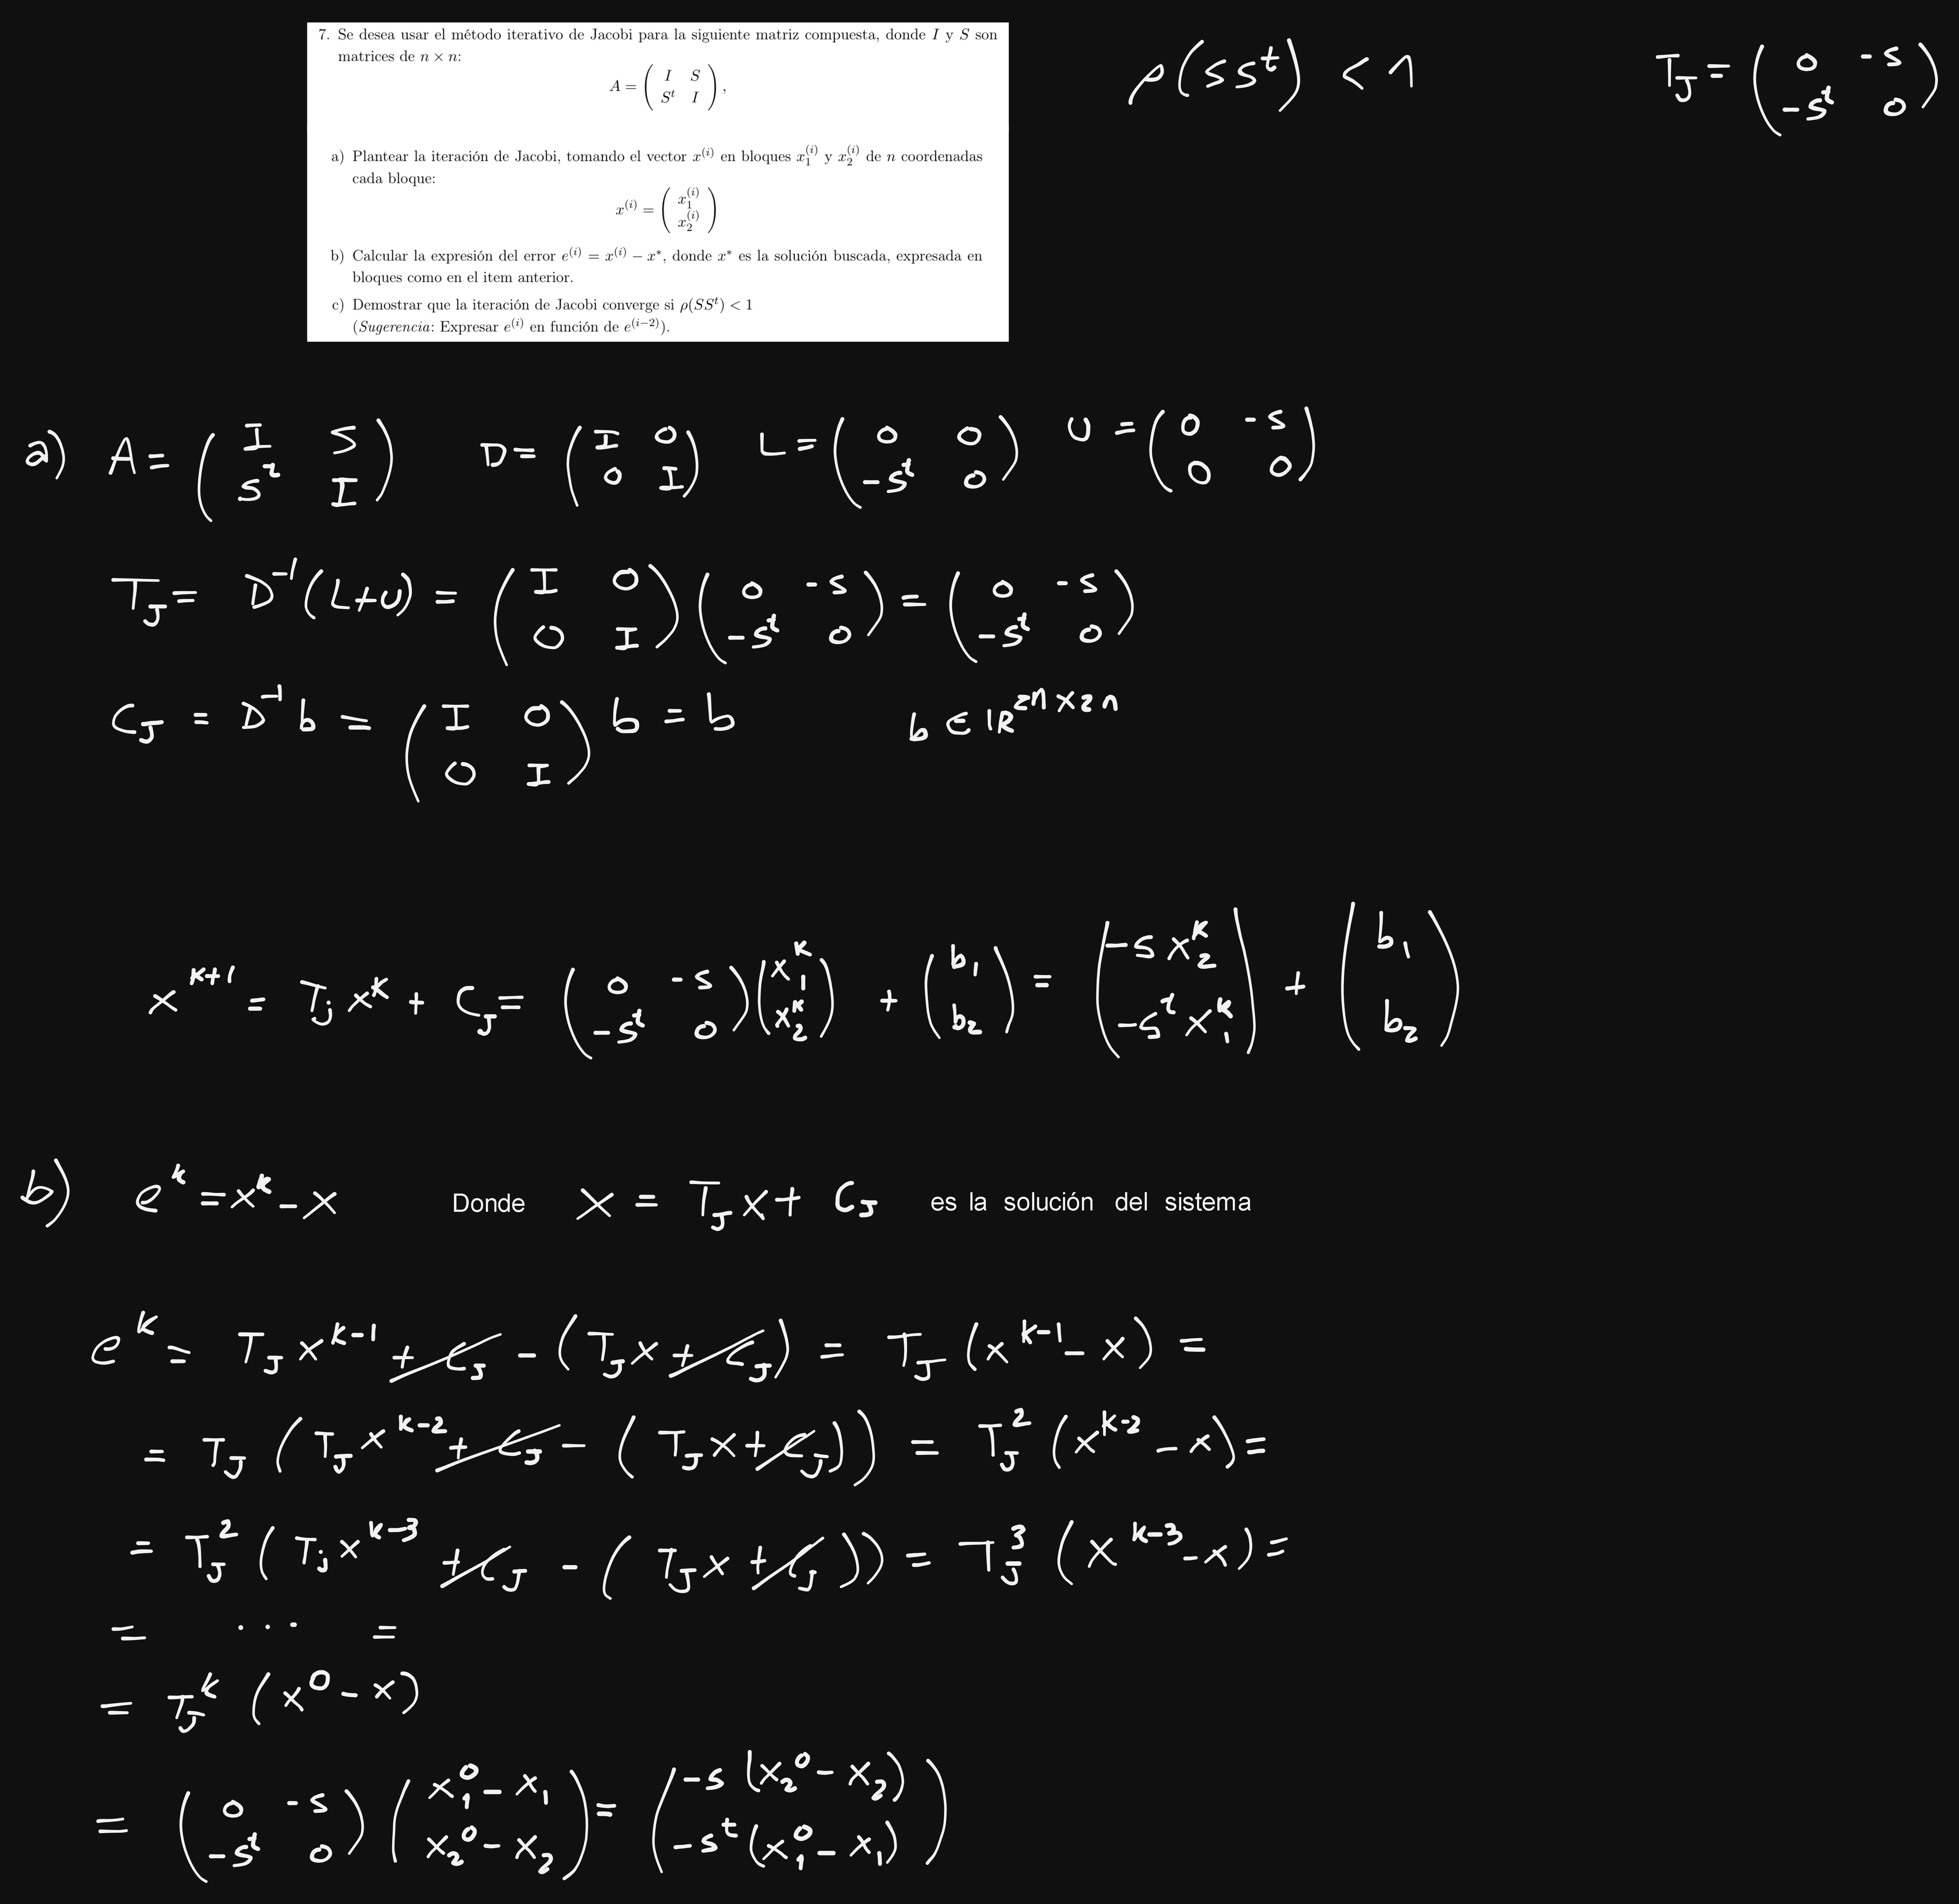 7. Se desea usar el método iterativo de Jacobi para la siguiente matriz compuesta, donde I y S son
matrices de n × n:
A = ( I S ; S^t I ),
a) Plantear la iteración de Jacobi, tomando el vector x^(i) en bloques x_1^(i) y x_2^(i) de n coordenadas
cada bloque:
x^(i) = ( x_1^(i) ; x_2^(i) )
b) Calcular la expresión del error e^(i) = x^(i) − x*, donde x* es la solución buscada, expresada en
bloques como en el item anterior.
c) Demostrar que la iteración de Jacobi converge si ρ(SS^t) < 1
(Sugerencia: Expresar e^(i) en función de e^(i−2)).
ρ(SS^t) < 1
T_J = ( 0 -S ; -S^t 0 )
a) A = ( I S ; S^t I ) D = ( I 0 ; 0 I ) L = ( 0 0 ; -S^t 0 ) U = ( 0 -S ; 0 0 )
T_J = D^-1 (L+U) = ( I 0 ; 0 I ) ( 0 -S ; -S^t 0 ) = ( 0 -S ; -S^t 0 )
C_J = D^-1 b = ( I 0 ; 0 I ) b = b b ∈ ℝ^2n×2n
x^k+1 = T_j x^k + C_J = ( 0 -S ; -S^t 0 ) ( x_1^k ; x_2^k ) + ( b_1 ; b_2 ) = ( -S x_2^k ; -S^t x_1^k ) + ( b_1 ; b_2 )
b) e^k = x^k - x Donde x = T_J x + C_J es la solución del sistema
e^k = T_J x^k-1 + C_J - ( T_J x + C_J ) = T_J ( x^k-1 - x ) =
= T_J ( T_J x^k-2 + C_J - ( T_J x + C_J ) ) = T_J^2 ( x^k-2 - x ) =
= T_J^2 ( T_j x^k-3 + C_J - ( T_J x + C_J ) ) = T_J^3 ( x^k-3 - x ) =
= ... =
= T_J^k ( x^0 - x )
= ( 0 -S ; -S^t 0 ) ( x_1^0 - x_1 ; x_2^0 - x_2 ) = ( -S (x_2^0 - x_2) ; -S^t (x_1^0 - x_1) )